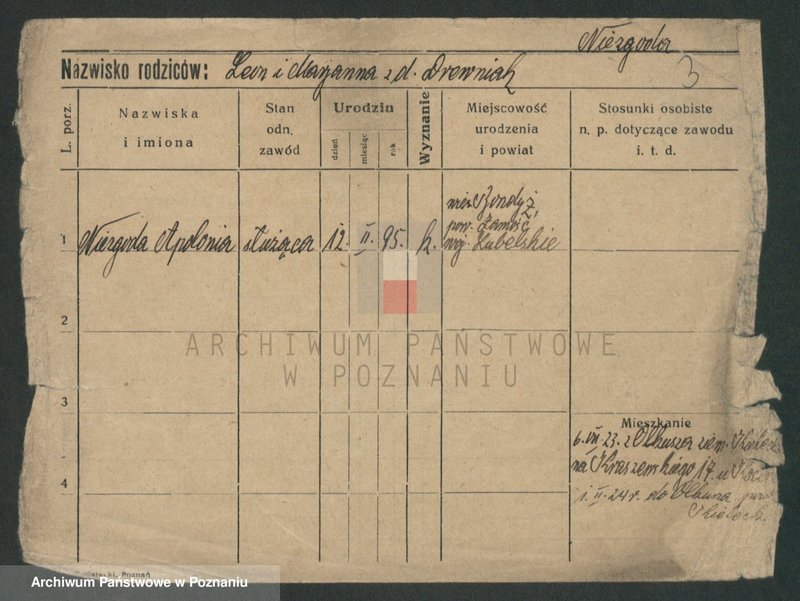 Niezgoda
Nazwisko rodziców: Leon i Maryanna z d. Drewniak
3
L. porz.
Nazwiska
i imiona
Stan
odn.
zawód
Urodzin
dzień
miesiąc
rok
Wyznanie
Miejscowość
urodzenia
i powiat
Stosunki osobiste
n. p. dotyczące zawodu
i. t. d.
1
Niezgoda Apolonia
służąca
12.
II.
95.
k.
pow. Zamość,
woj. Lubelskie
2
3
4
Mieszkanie
6. VII. 23. z Olkusza ziem.
na Kraszewskiego 17. u
1. II. 24 r. do Olkusza,
ARCHIWUM PAŃSTWOWE
W POZNANIU
Poznań
Archiwum Państwowe w Poznaniu